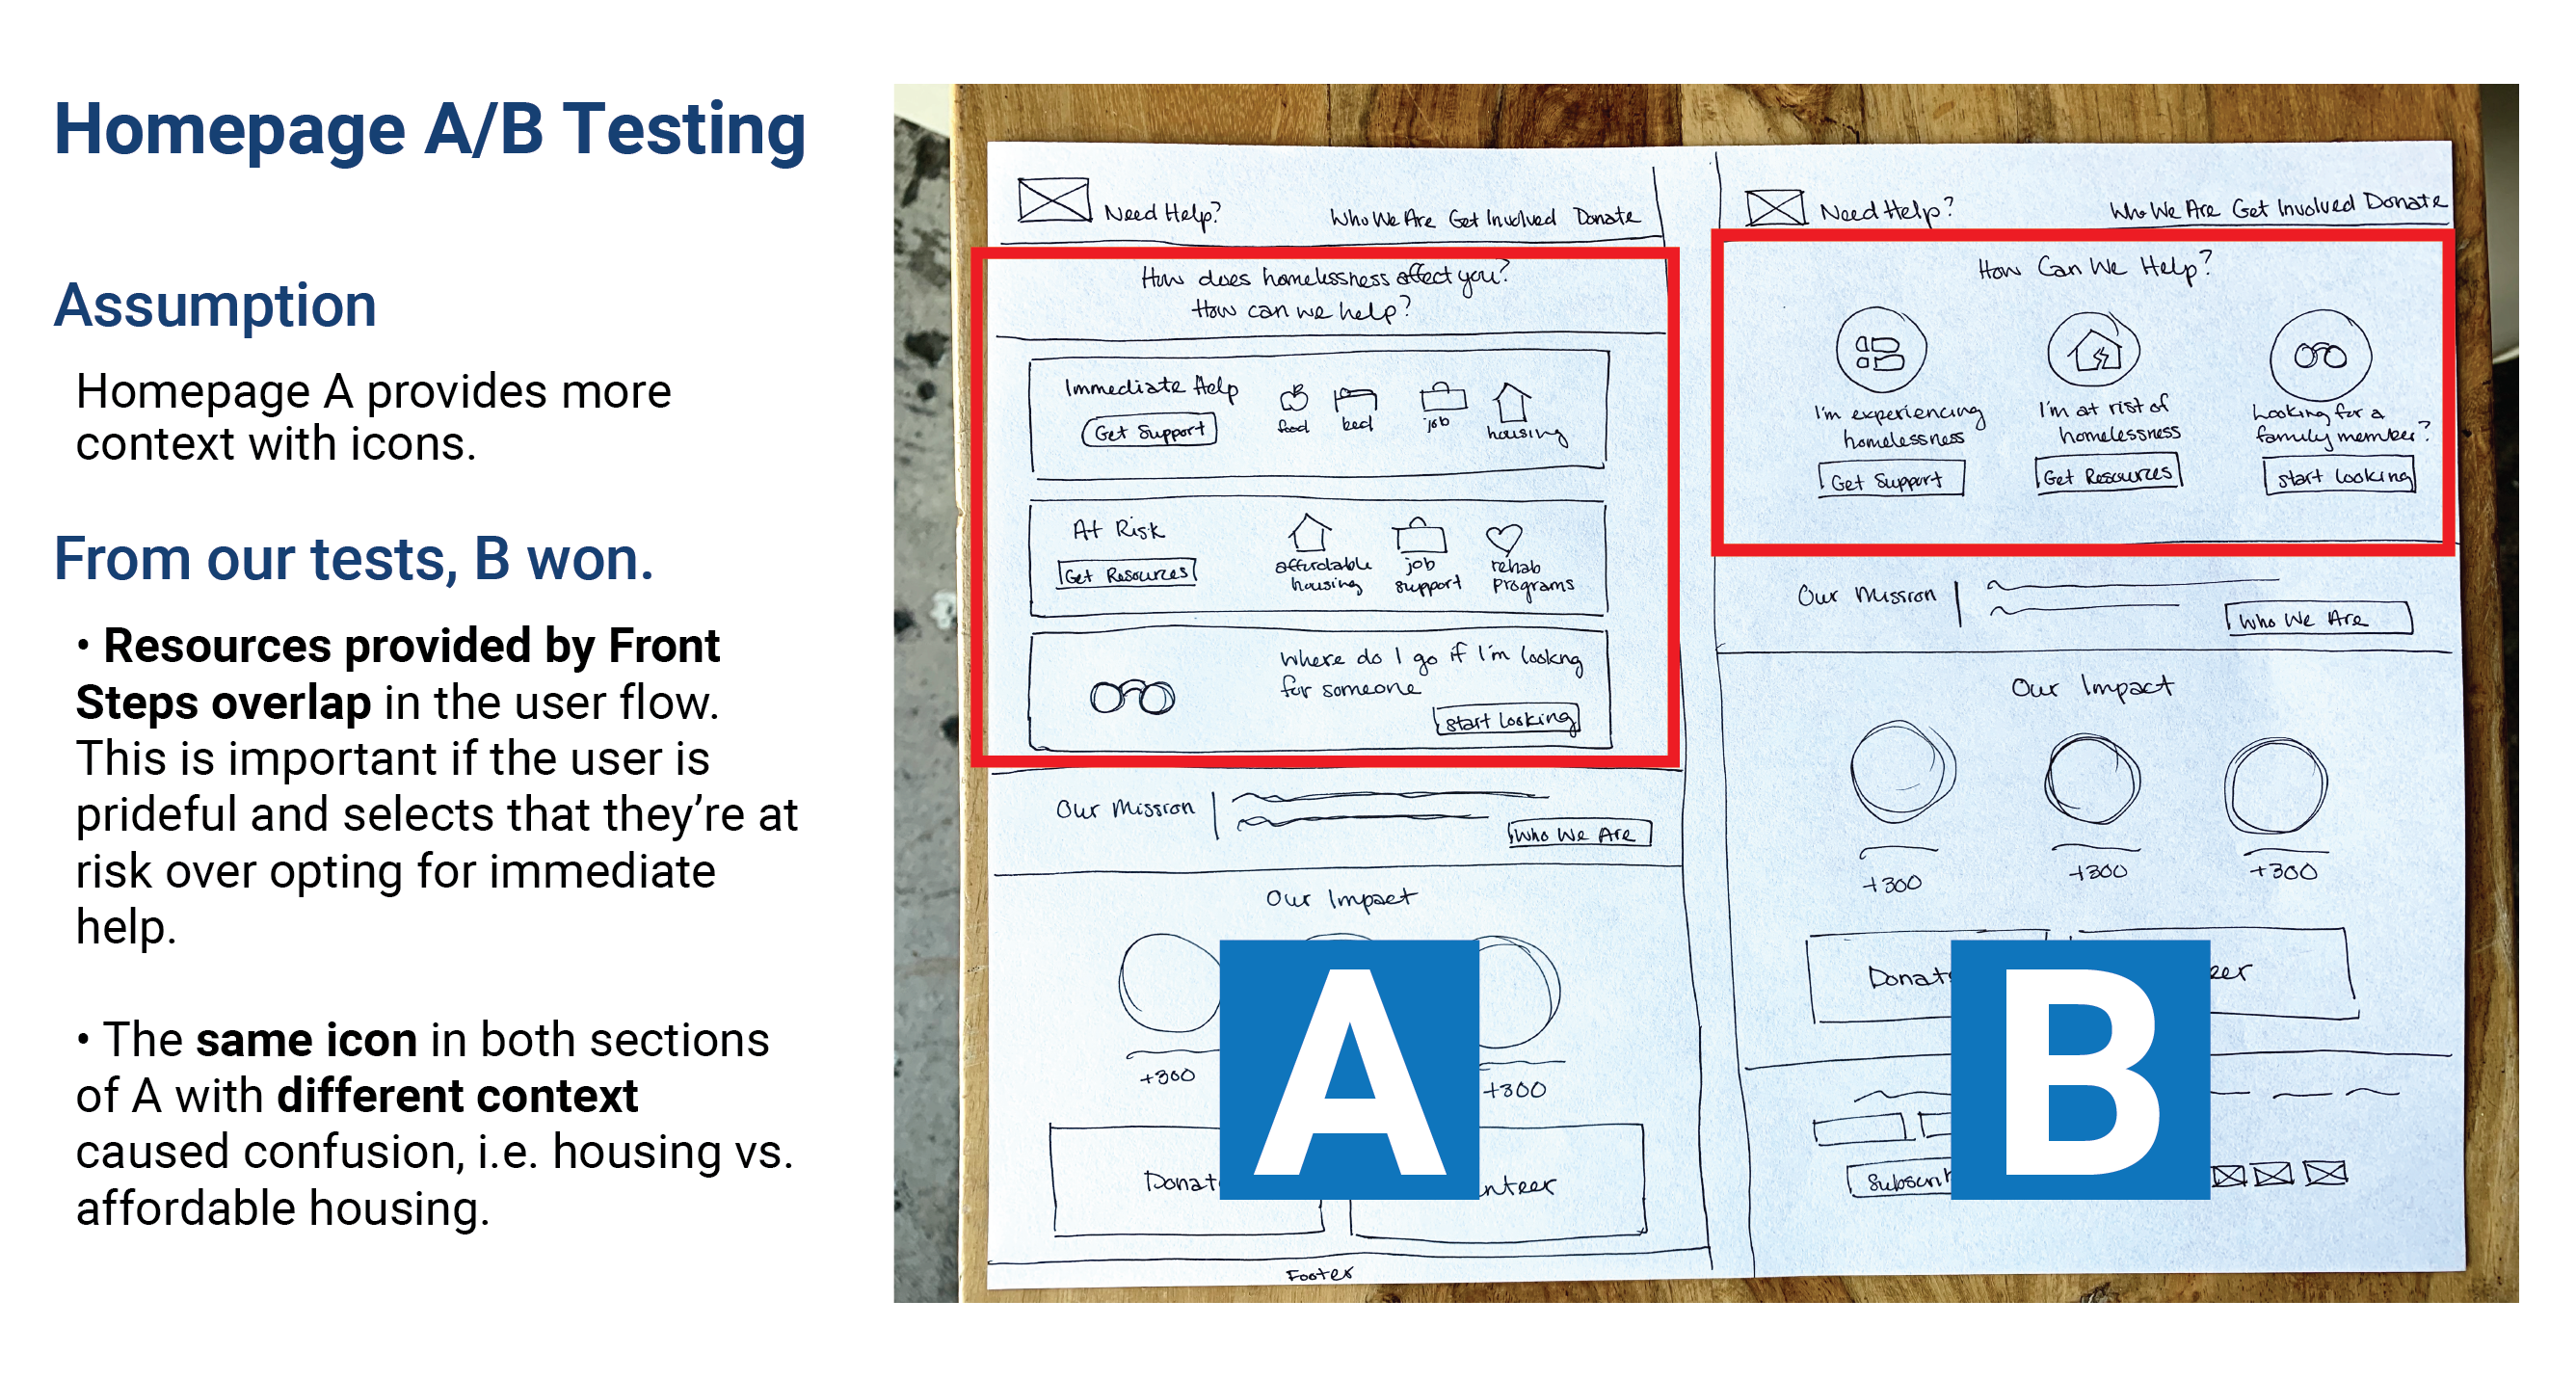 Homepage A/B Testing
Assumption
Homepage A provides more
context with icons.
From our tests, B won.
• Resources provided by Front
Steps overlap in the user flow.
This is important if the user is
prideful and selects that they're at
risk over opting for immediate
help.
• The same icon in both sections
of A with different context
caused confusion, i.e. housing vs.
affordable housing.
Need Help? Who We Are Get Involved Donate
How does homelessness affect you?
How can we help?
Immediate Help
Get Support
food bed job housing
At Risk
Get Resources
affordable
housing
job
support
rehab
programs
Where do I go if I'm lookng
for someone
start looking
Our Mission
Who We Are
Our Impact
+300
+300
Donat
nteer
Footer
A
Need Help? Who We Are Get Involved Donate
How Can We Help?
I'm experiencing
homelessness
Get Support
I'm at risk of
homelessness
Get Resources
Looking for a
family member?
start looking
Our Mission
Who We Are
Our Impact
+300
+300
+300
Donat
eer
Subscri
B